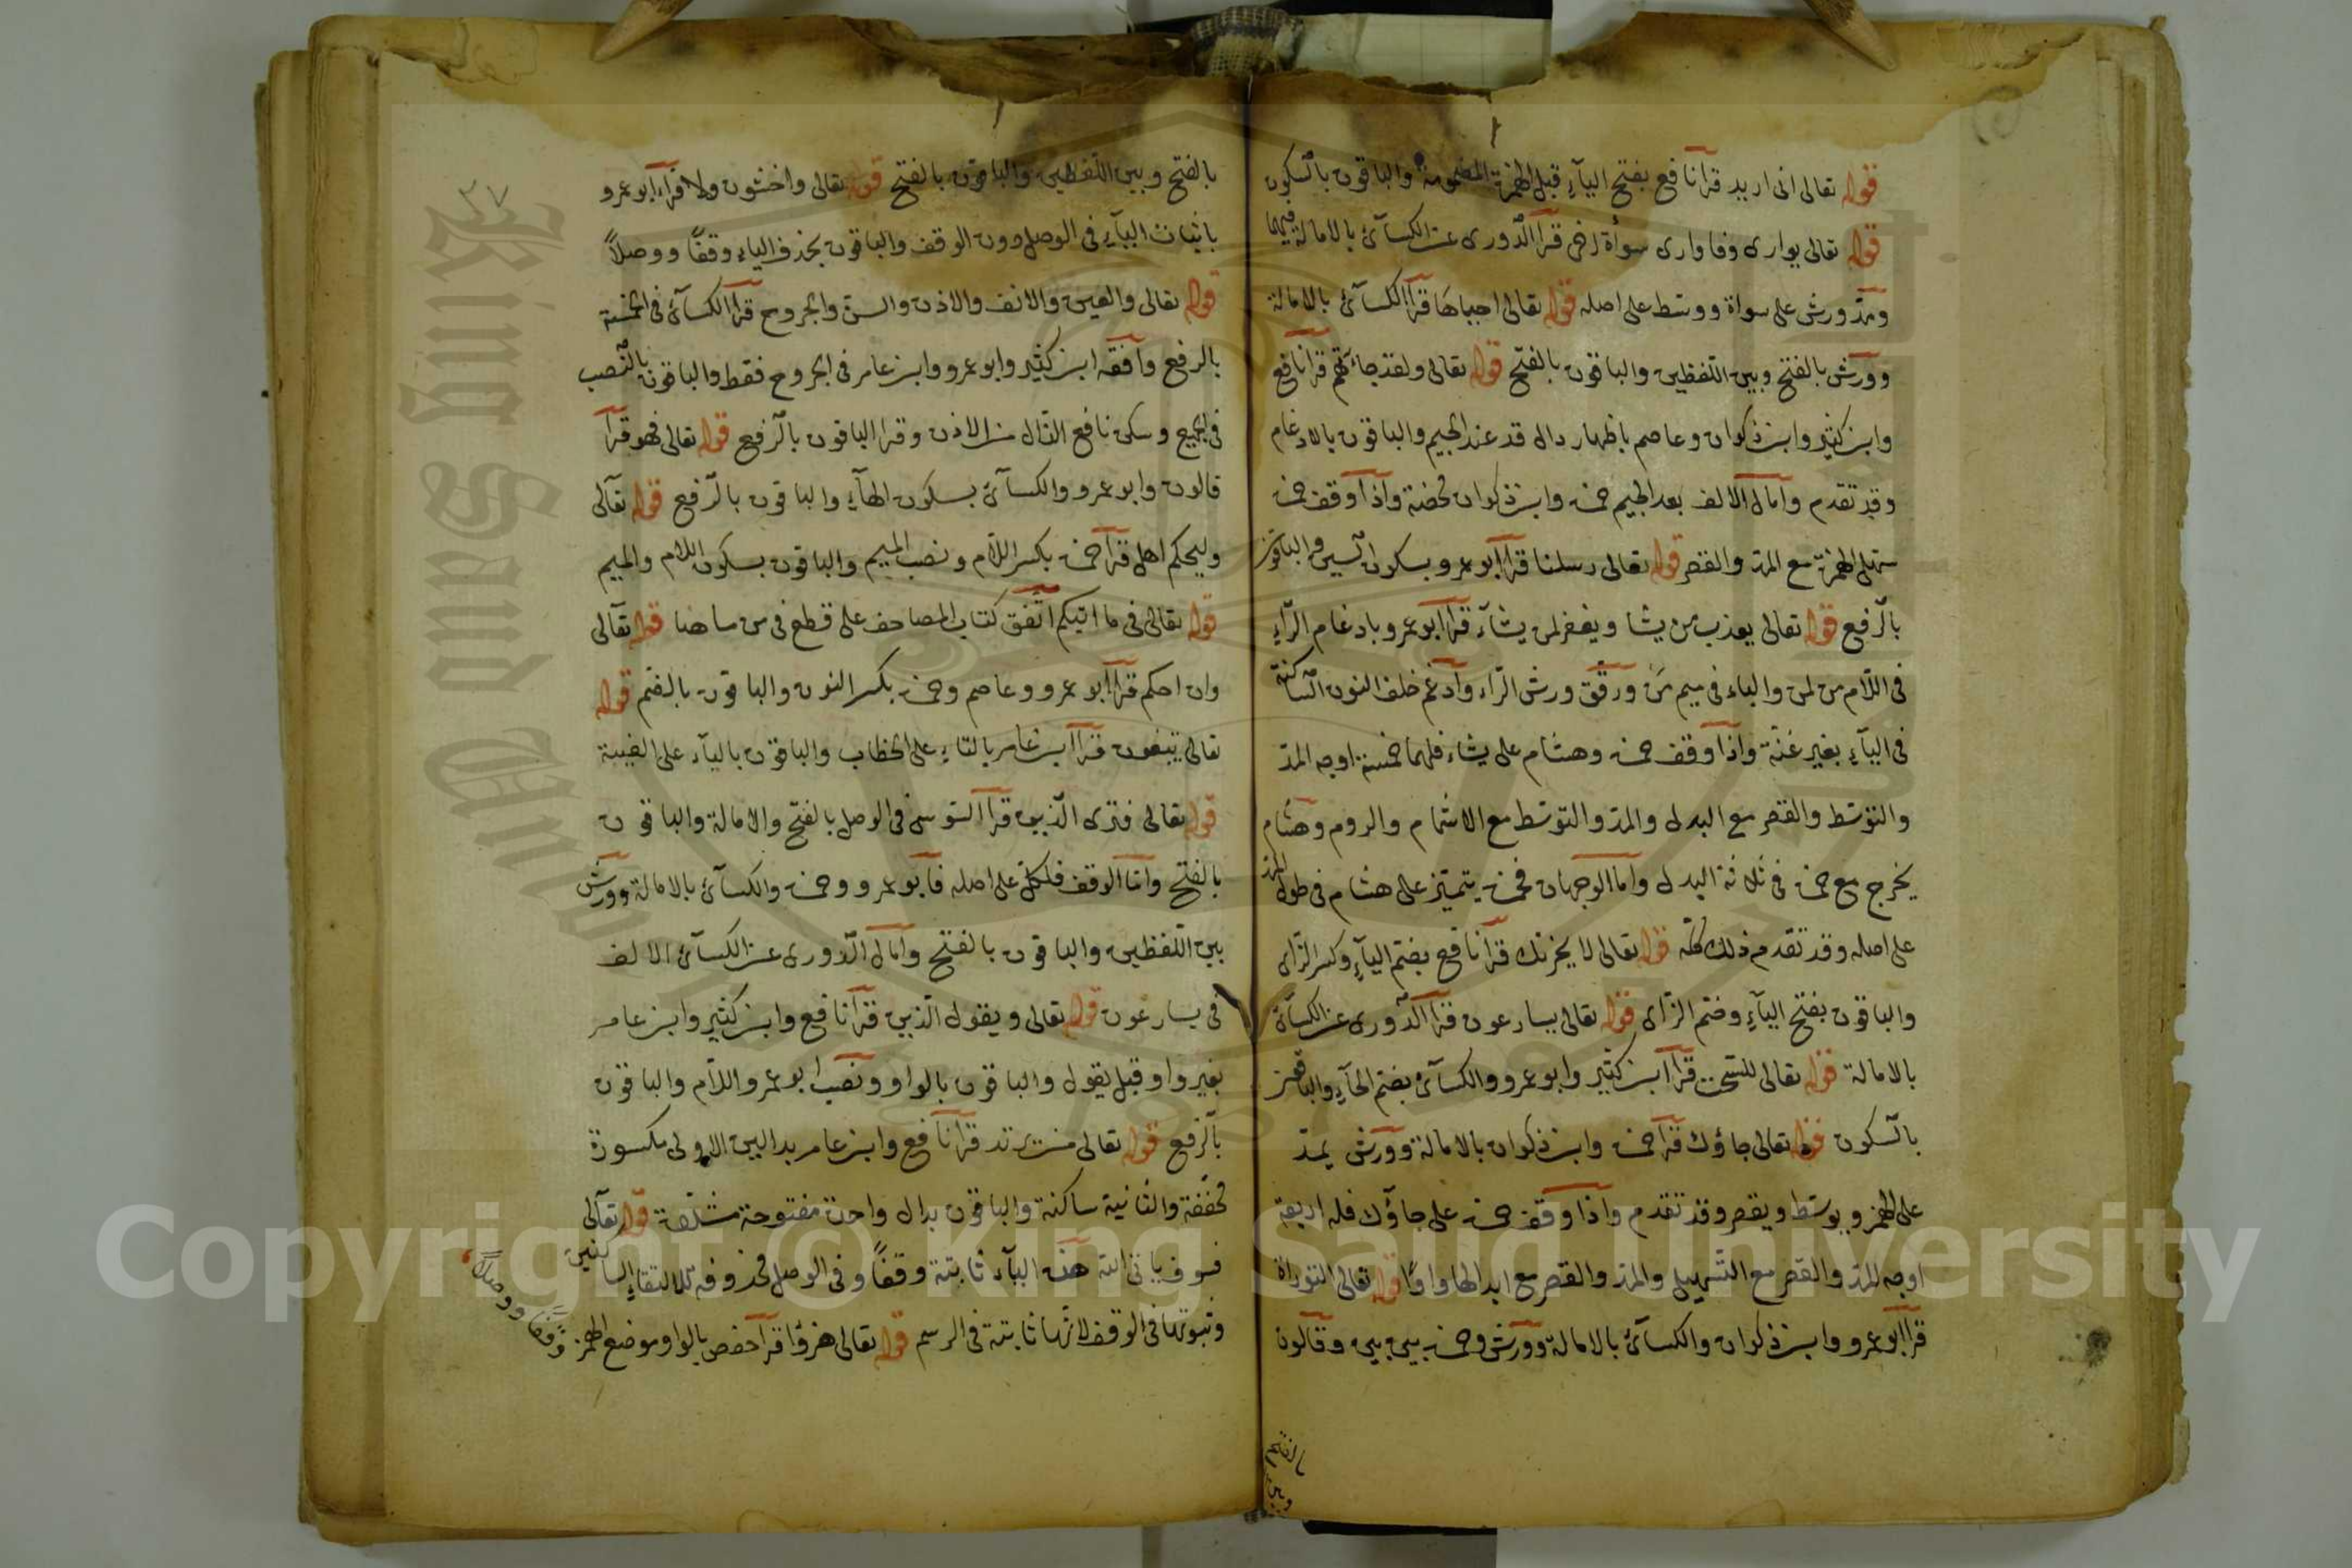 قوله تعالى انى اريد قرأ نافع بفتح اليآء قبل الهمزة المضمومة والباقون بالسكون
قوله تعالى يوارى وفاوارى سوأة اخى قرأ الدورى عن الكسآئ بالامالة فيهما
ومدّ ورش على سواة ووسّط على اصله قوله تعالى احياها قرأ الكسآئ بالامالة
وورش بالفتح وبين اللفظين والباقون بالفتح قوله تعالى ولقد جاءتهم قرأ نافع
وابن كثير وابن ذكوان وعاصم باظهار دال قد عند الجيم والباقون بالادغام
وقد تقدم وأمال الالف بعد الجيم حمزة وابن ذكوان محضة واذا وقف حمزة
سهل الهمزة مع المد والقصر قوله تعالى رسلنا قرأ ابو عمرو بسكون السين والباقون
بالرفع قوله تعالى يعذب من يشا ويغفر لمن يشآء قرأ ابو عمرو بادغام الرآء
فى اللام من لمن والباء فى ميم من ورقق ورش الرآء وأدغم خلف النون الساكنة
فى اليآء بغير غنّة واذا وقف حمزة وهشام على يشاء فلهما خمسة اوجه المدّ
والتوسّط والقصر مع البدل والمد والتوسّط مع الاشمام والروم وهشام
يخرج مع حمزة فى ثلاثة البدل وأما الوجهان فحمزة يتميّز على هشام فى طول المد
على اصله وقد تقدم ذلك كلّه قوله تعالى لا يحزنك قرأ نافع بضم اليآء وكسر الزّاى
والباقون بفتح اليآء وضم الزّاى قوله تعالى يسارعون قرأ الدّورى عن الكسآئ
بالامالة قوله تعالى للسّحت قرأ ابن كثير وابو عمرو والكسآئ بضم الحآء والباقون
بالسكون قوله تعالى جاؤك قرأ حمزة وابن ذكوان بالامالة وورش يمدّ
على الهمز ويوسّط ويقصر وقد تقدم واذا وقف حمزة على جاؤك فله اربعة
اوجه المد والقصر مع التسهيل والمد والقصر مع ابدالها واوًا قوله تعالى التوراة
قرأ ابو عمرو وابن ذكوان والكسآئ بالامالة وورش وحمزة بين بين وقالون
بالفتح
وبين
٣٧
بالفتح وبين اللفظين والباقون بالفتح قوله تعالى واخشون ولا قرأ ابو عمرو
باثبات اليآء فى الوصل دون الوقف والباقون بحذف الياء وقفًا ووصلاً
قوله تعالى والعين والانف والاذن والسن والجروح قرأ الكسآئ فى الخمسة
بالرفع وافقه ابن كثير وابو عمرو وابن عامر فى الجروح فقط والباقون بالنّصب
فى الجميع وسكن نافع الذّال من الاذن وقرا الباقون بالرّفع قوله تعالى فهو قرأ
قالون وابو عمرو والكسآئ بسكون الهآء والباقون بالرّفع قوله تعآلى
وليحكم اهل قرأ حمزة بكسر اللام ونصب الميم والباقون بسكون اللام والميم
قوله تعالى فى ما اتيكم اتّفق كتاب المصاحف على قطع فى من ما هنا قوله تعآلى
وان احكم قرأ ابو عمرو وعاصم وحمزة بكسر النون والباقون بالضم قوله
تعالى تبغون قرأ ابن عامر بالتاء على الخطاب والباقون باليآء على الغيبة
قوله تعالى فترى الّذين قرأ السّوسى فى الوصل بالفتح والامالة والباقون
بالفتح وامّا الوقف فلكلّ على اصله فأبو عمرو وحمزة والكسآئ بالامالة وورش
بين اللفظين والباقون بالفتح وأمال الدّورى عن الكسآئ الالف
فى يسارعون قوله تعالى ويقول الّذين قرأ نافع وابن كثير وابن عامر
بغير واو قبل يقول والباقون بالواو ونصب ابو عمرو اللام والباقون
بالرّفع قوله تعالى من يرتد قرأ نافع وابن عامر بدالين الاولى مكسورة
مخفّفة والثّانية ساكنة والباقون بدال واحدة مفتوحة مشدّدة قوله تعآلى
فسوف ياتى الله هذه اليآء ثابتة وقفًا وفى الوصل محذوفة لالتقاء الساكنين
وثبوتها فى الوقف لانّها ثابتة فى الرسم قوله تعالى هزؤا قرأ حفص بالواو موضع الهمز وقفا ووصلاً
King Saud University
Copyright © King Saud University